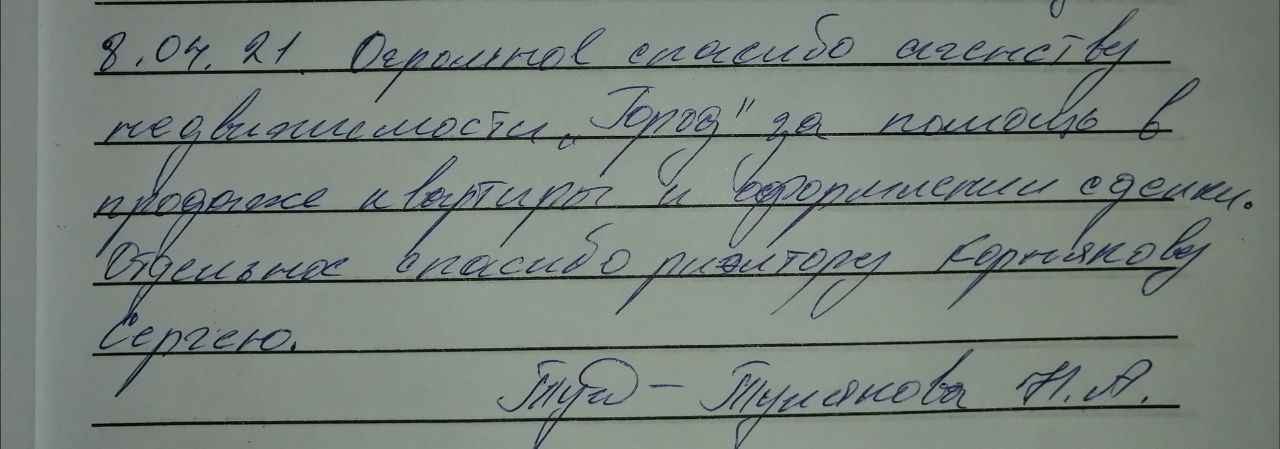 8.04.21 Огромное спасибо агенству
недвижимости "Город" за помощь в
продаже квартиры и оформлении сделки.
Отдельное спасибо риэлтору Корнякову
Сергею.
Н.А.